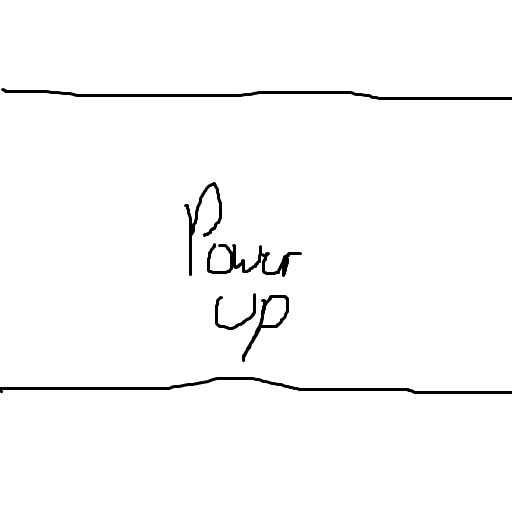 Power
up